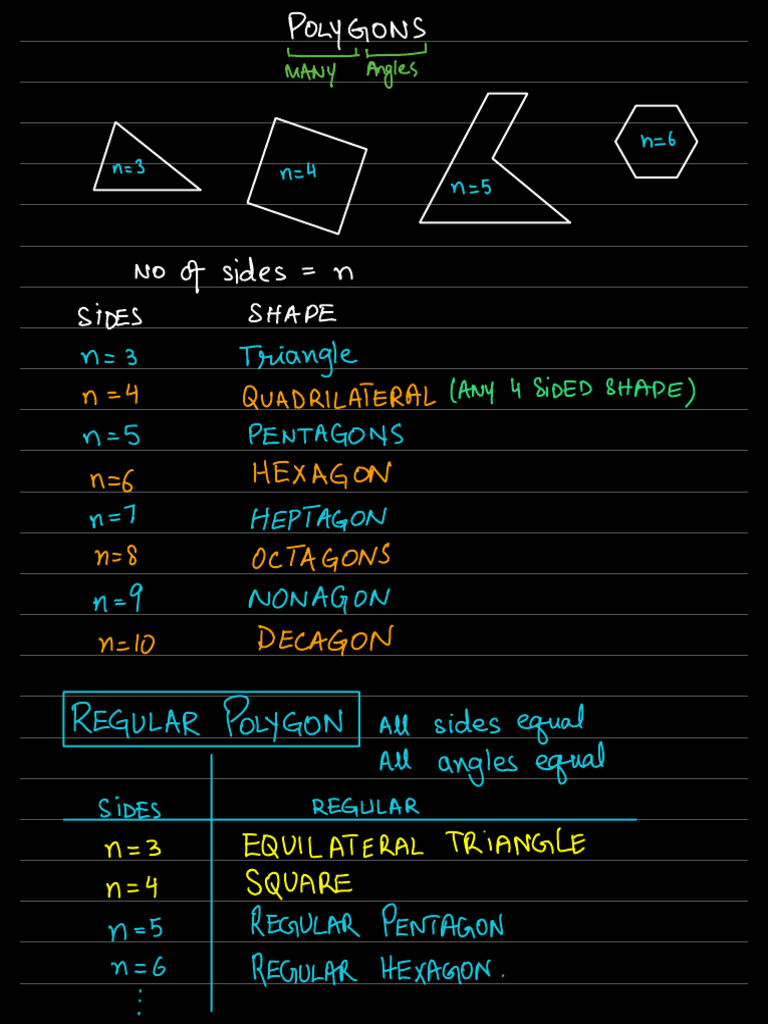 POLYGONS
MANY Angles
n=3
n=4
n=5
n=6
NO of sides = n
SIDES SHAPE
n=3 Triangle
n=4 QUADRILATERAL (ANY 4 SIDED SHAPE)
n=5 PENTAGONS
n=6 HEXAGON
n=7 HEPTAGON
n=8 OCTAGONS
n=9 NONAGON
n=10 DECAGON
REGULAR POLYGON All sides equal
All angles equal
SIDES REGULAR
n=3 EQUILATERAL TRIANGLE
n=4 SQUARE
n=5 REGULAR PENTAGON
n=6 REGULAR HEXAGON.
⋮